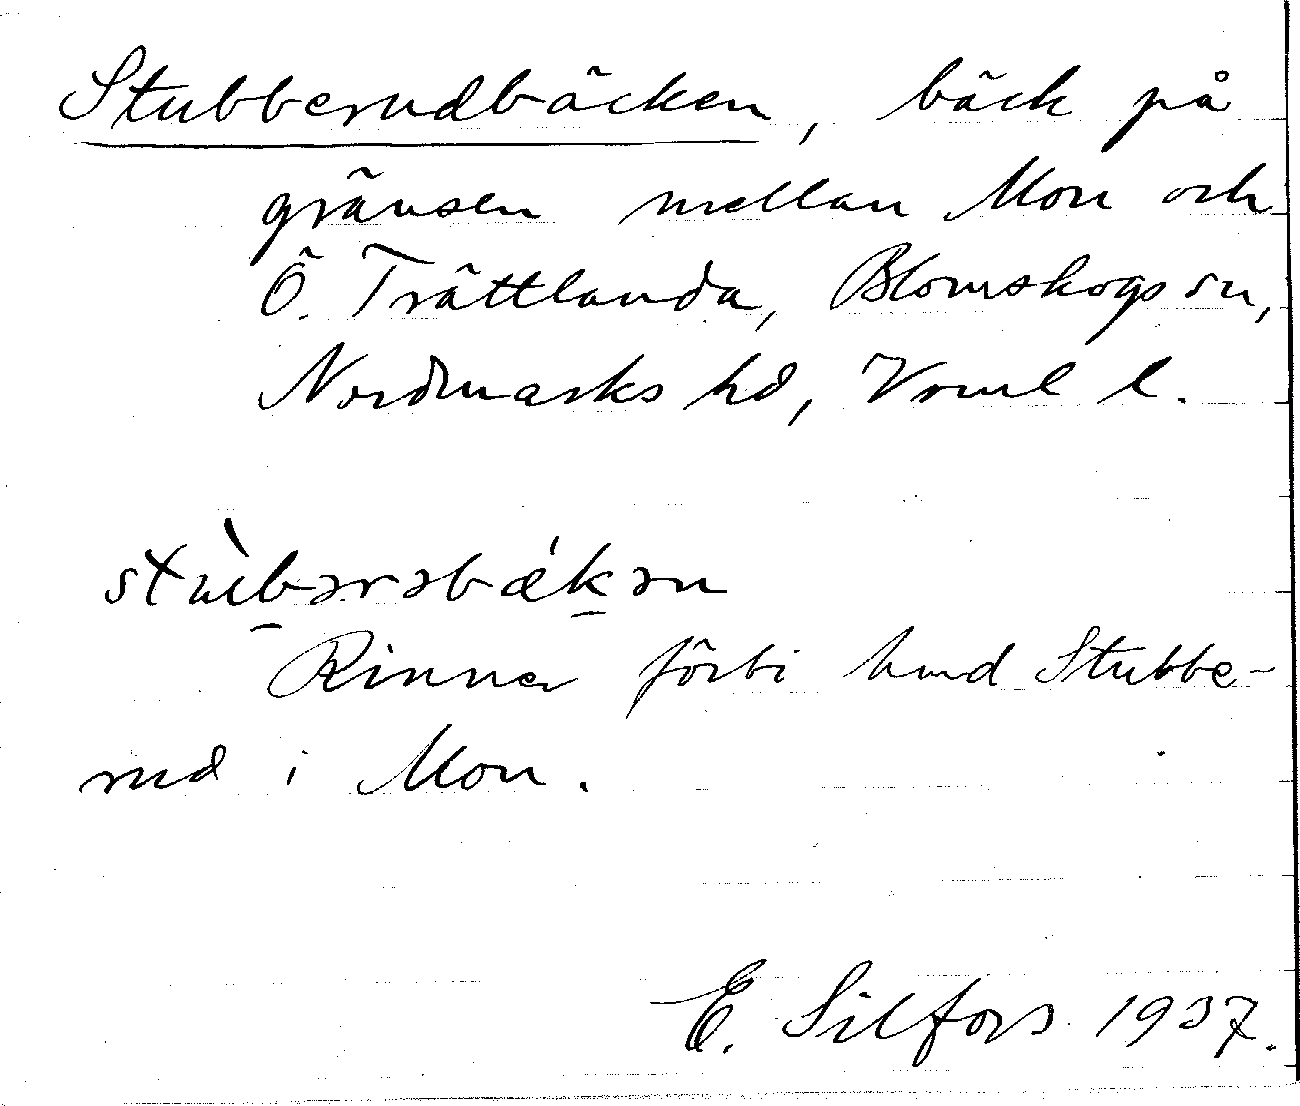 Stubberudbäcken, bäck på
gränsen mellan Mon och
Ö. Trättlanda, Blomskogs sn,
Nordmarks hd, Vrml l.
stùb̲ərəbǽk̲ən
Rinner förbi hmd Stubbe-
rud i Mon.
E. Silfors 1937.